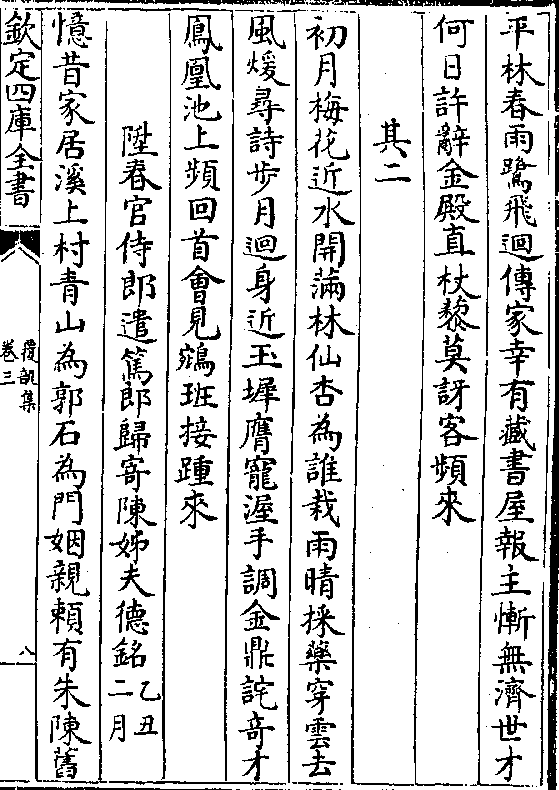 平林春雨鷺飛迴傳家幸有藏書屋報主慚無濟世才
何日許辭金殿直杖藜莫訝客頻來
其二
初月梅花近水開滿林仙杏為誰栽雨晴採藥穿雲去
風煖尋詩步月迴身近玉墀膺寵渥手調金鼎詫奇才
鳳凰池上頻回首會見鵷班接踵來
陞春官侍郎遣篤郎歸寄陳姊夫德銘乙丑二月
憶昔家居溪上村青山為郭石為門姻親頼有朱陳舊
欽定四庫全書
覆瓿集
卷三
八